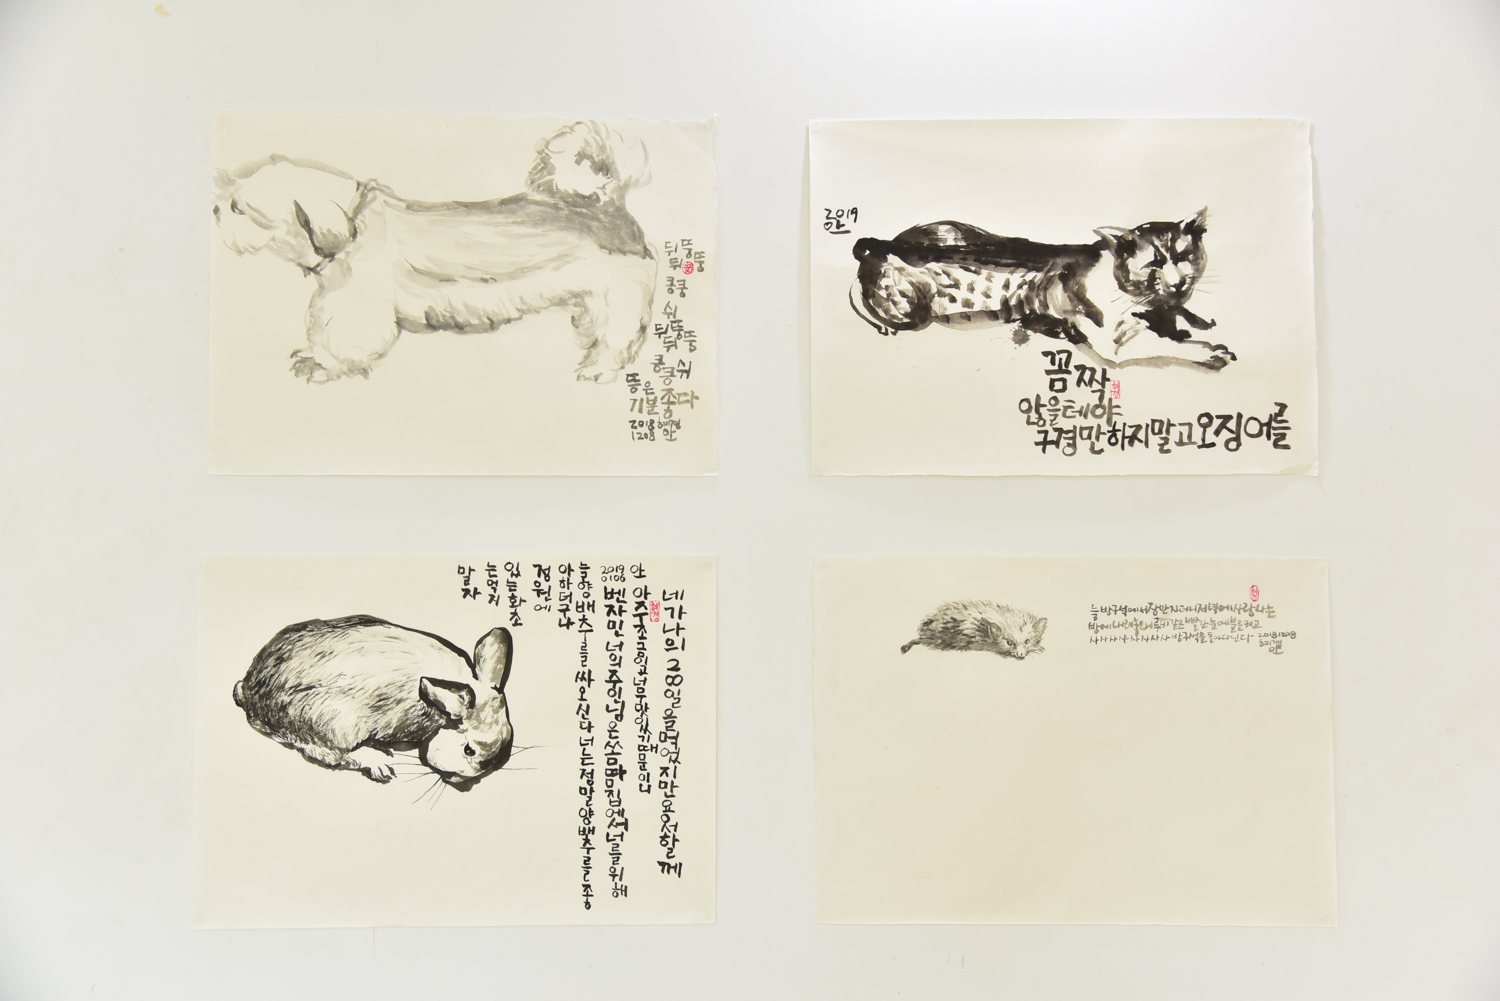 뒤뚱
뒤뚱
킁킁
쉬
뒤뚱
뒤뚱
킁킁 쉬
똥은
기분 좋다
2018 혜경
1208 안
2019
안
꼼짝
혜경
않을테야
구경만하지말고오징어를
네가나의 20일을 먹었지만 용서할께
아주조금이고너무맛있기때문이니
혜경
안
2019
0106
벤자민 너의 주인님은 쏨땀집에서 너를위해
늘양배추를 싸오신다 너는정말양배추를좋
아하더구나
정원에
있는화초
는먹지
말자
늘 방구석에서 잠만자더니 저녁에 사랑하는
사사사사사사사사 방구석을 돌아다닌다 20181208
혜경
안